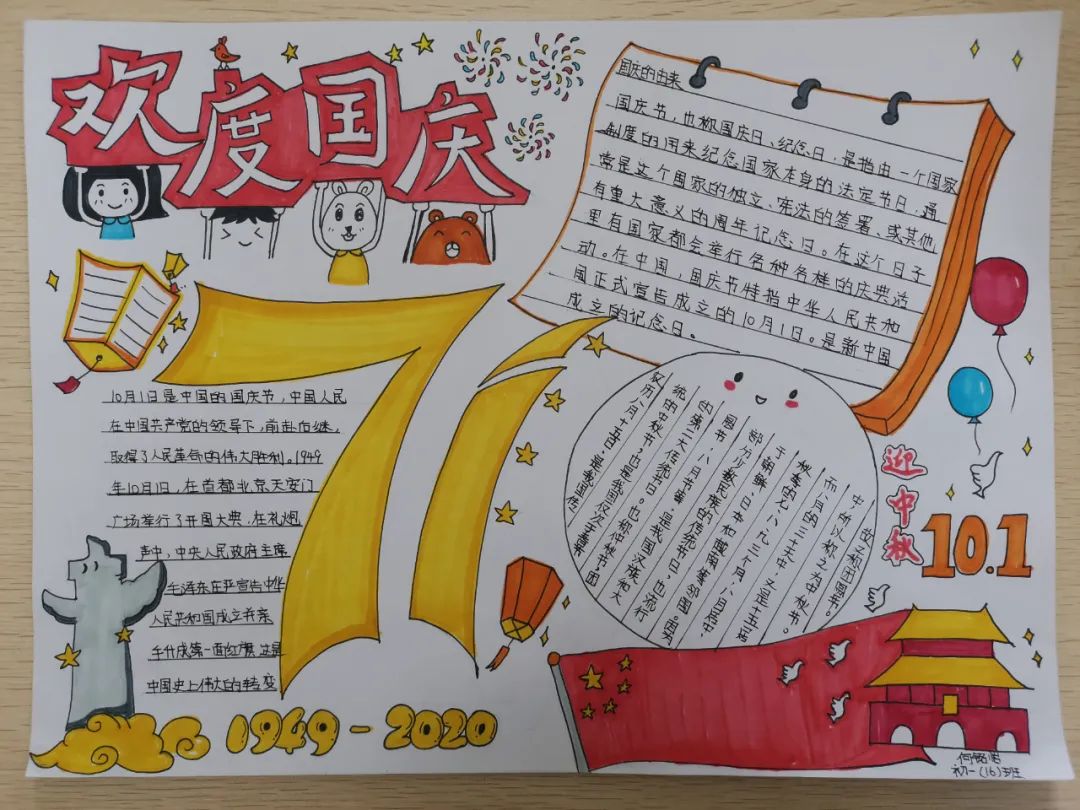 欢度国庆
国庆的由来
国庆节，也称国庆日、纪念日，是指由一个国家
制度的用来纪念国家本身的法定节日，通
常是这个国家的独立、宪法的签署、或其他
有重大意义的周年记念日。在这个日子
里有国家都会举行各种各样的庆典活
动。在中国，国庆节特指中华人民共和
国正式宣告成立的10月1日。是新中国
成立的记念日。
71
10月1日是中国的国庆节，中国人民
在中国共产党的领导下，前赴后继，
取得了人民革命的伟大胜利。1949
年10月1日，在首都北京天安门
广场举行了开国大典，在礼炮
声中，中央人民政府主席
毛泽东庄严宣告中华
人民共和国成立并亲
手升成第一面红旗，这是
中国史上伟大的转变
1949-2020
权历八月十五日，是我国传
统的中秋节，也是我国仅次于春节
的第二大传统节日。也称仲秋节，团
圆节、八月节等，是我国汉族和大
部分少数民族的传统节日，也流行
于朝鲜、日本和越南等邻国。因为
秋季的七八九三个月，八月居中
而八月的三十天中，又是十五居
中所以称之为中秋节。
此又称团圆节。
迎中秋
10.1
初一(16)班